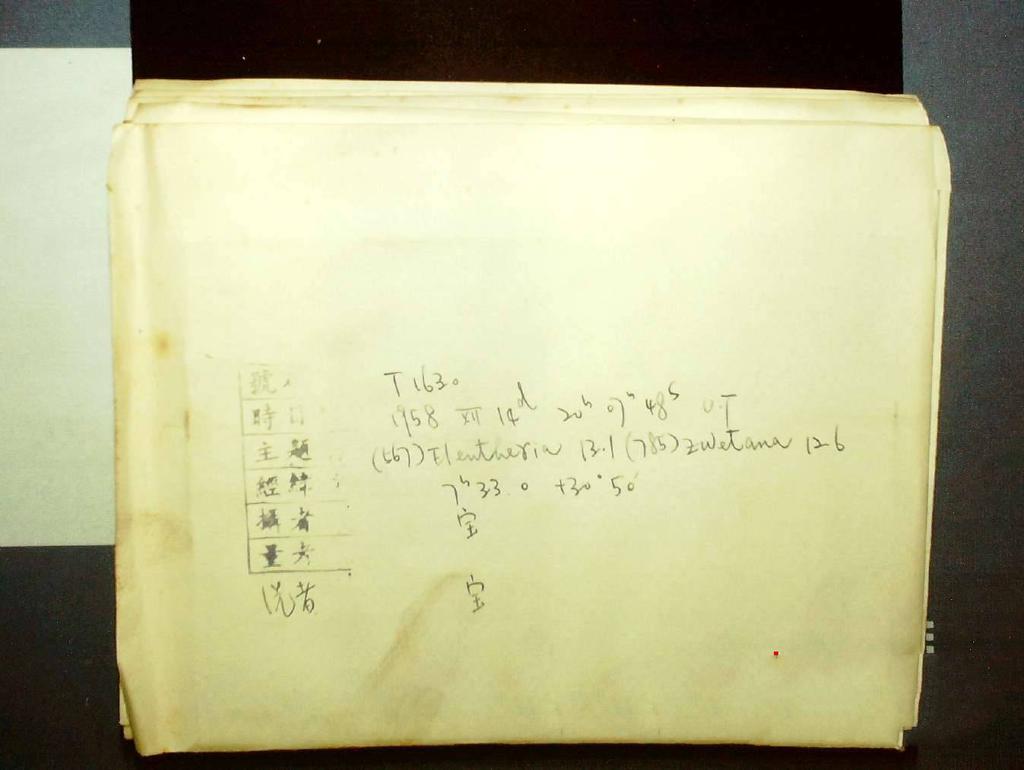 號 T 1630
時日 1958 XII 14d 20h 07m 48s U.T
主題 (567) Eleutheria 13.1 (785) Zwetana 12.6
經緯 7h 33.0 +30° 50'
攝者 宝
量者
洗者 宝